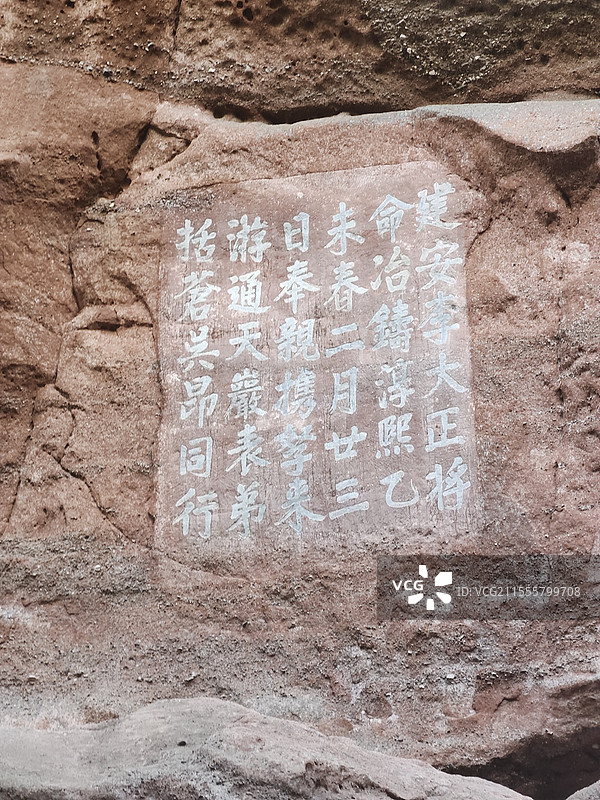 建安李大正将
命冶鑄淳熙乙
未春二月廿三
日奉親攜孥来
游通天巖表弟
括蒼吳昂同行
VCG
ID:VCG211555799708